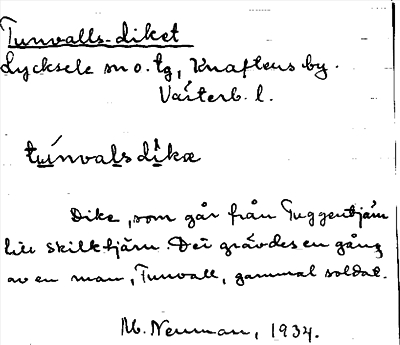 Tunvalls-diket
Lycksele sn o. tg, Knaftens by.
Västerb. l.
túnvalsdìkæ
Dike, som går från Tuggentjärn
till Skilltjärn. Det grävdes en gång
av en man, Tunvall, gammal soldat.
M. Neuman, 1934.